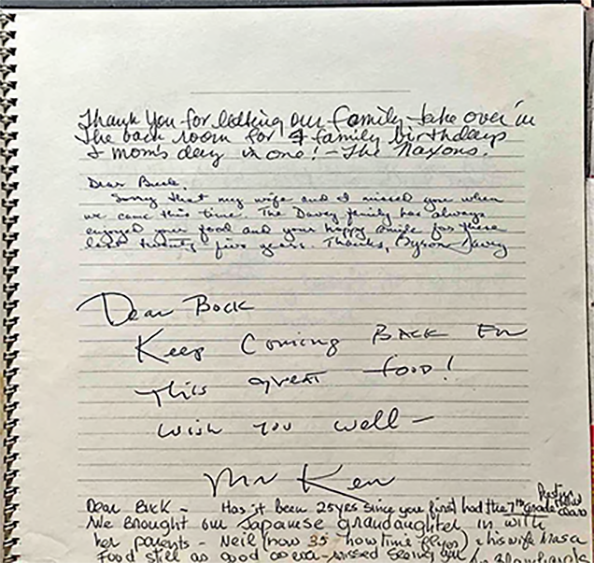 Thank you for letting our family take over in
the back room for 4 family birthdays
+ mom's day in one! - The Naxons.
Dear Buck,
Sorry that my wife and I missed you when
we came this time. The Davey family has always
enjoyed your food and your happy smile for these
last twenty five years. Thanks, Davey
Dear Bock
Keep Coming Back For
This great food!
Wish you well -
Mr Ken
Dear Buck - Has it been 25 yrs since you first had the 7th grade class
We brought our Japanese grandaughter in with
her parents - Neil (now 35 how time flyes) & his wife Masa
Food still as good as ever - missed seeing you